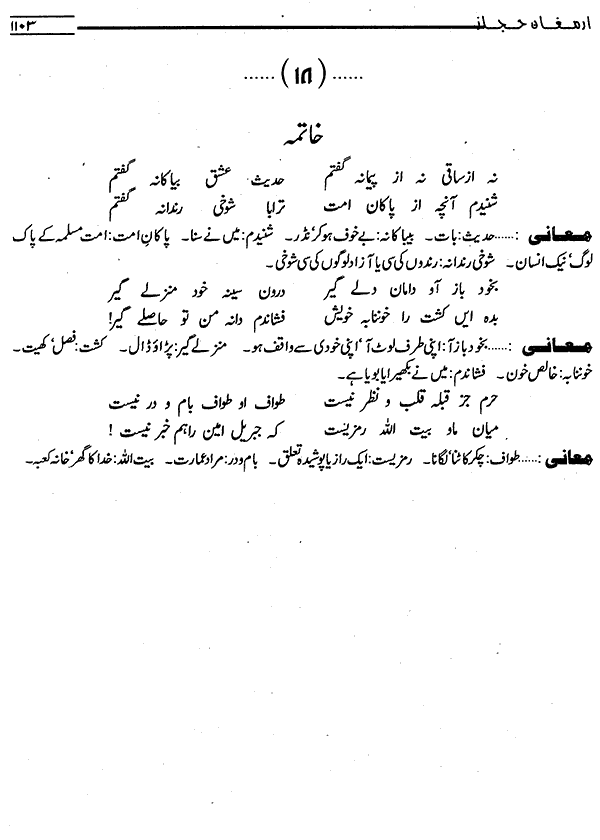 ارمغان حجاز ۱۱۰۳
......(۱۸)......
خاتمہ
نہ ازساقی نہ از پیمانہ گفتم حدیث عشق بیباکانہ گفتم
شنیدم آنچہ از پاکان امت ترابا شوخی رندانہ گفتم
معانی :......حدیث:بات۔ بیباکانہ:بے خوف ہوکر'نڈر۔ شنیدم:میں نے سنا۔ پاکان امت:امت مسلمہ کے پاک
لوگ'نیک انسان۔ شوخی رندانہ:رندوں کی سی یا آزاد لوگوں کی سی شوخی۔
بخود باز آو دامان دلے گیر درون سینہ خود منزلے گیر
بدہ ایں کشت را خوننابہ خویش فشاندم دانہ من تو حاصلے گیر!
معانی :......بخود باز آ:اپنی طرف لوٹ آ'اپنی خودی سے واقف ہو۔ منزلے گیر:پڑاؤ ڈال۔ کشت:فصل'کھیت۔
خوننابہ:خالص خون۔ فشاندم:میں نے بکھیرا یا بویا ہے۔
حرم جز قبلہ قلب و نظر نیست طواف او طواف بام و در نیست
میان ماو بیت اللہ رمزیست کہ جبریل امین راہم خبر نیست !
معانی :......طواف:چکر کاٹنا'لگانا۔ رمزیست:ایک راز یا پوشیدہ تعلق۔ بام و در:مراد عمارت۔ بیت اللہ:خدا کا گھر'خانہ کعبہ۔